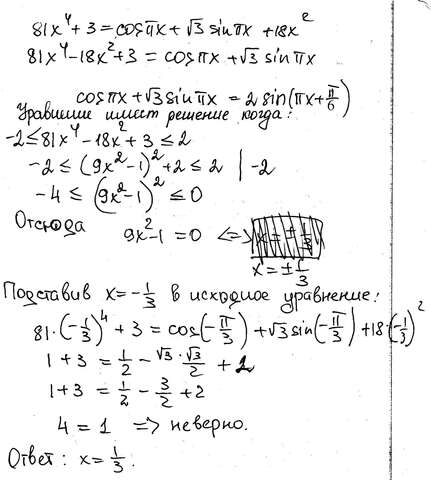 81x⁴+3 = cosπx + √3 sinπx + 18x²
81x⁴-18x²+3 = cosπx + √3 sinπx
cosπx + √3 sinπx = 2 sin(πx + π/6)
Уравнение имеет решение когда:
-2 ≤ 81x⁴-18x²+3 ≤ 2
-2 ≤ (9x²-1)²+2 ≤ 2 | -2
-4 ≤ (9x²-1)² ≤ 0
Отсюда 9x²-1 = 0 <=>
x = ±1/3
Подставив x = -1/3 в исходное уравнение:
81·(-1/3)⁴ + 3 = cos(-π/3) + √3 sin(-π/3) + 18·(-1/3)²
1+3 = 1/2 - √3·√3/2 + 2
1+3 = 1/2 - 3/2 + 2
4 = 1 => неверно.
Ответ: x = 1/3.